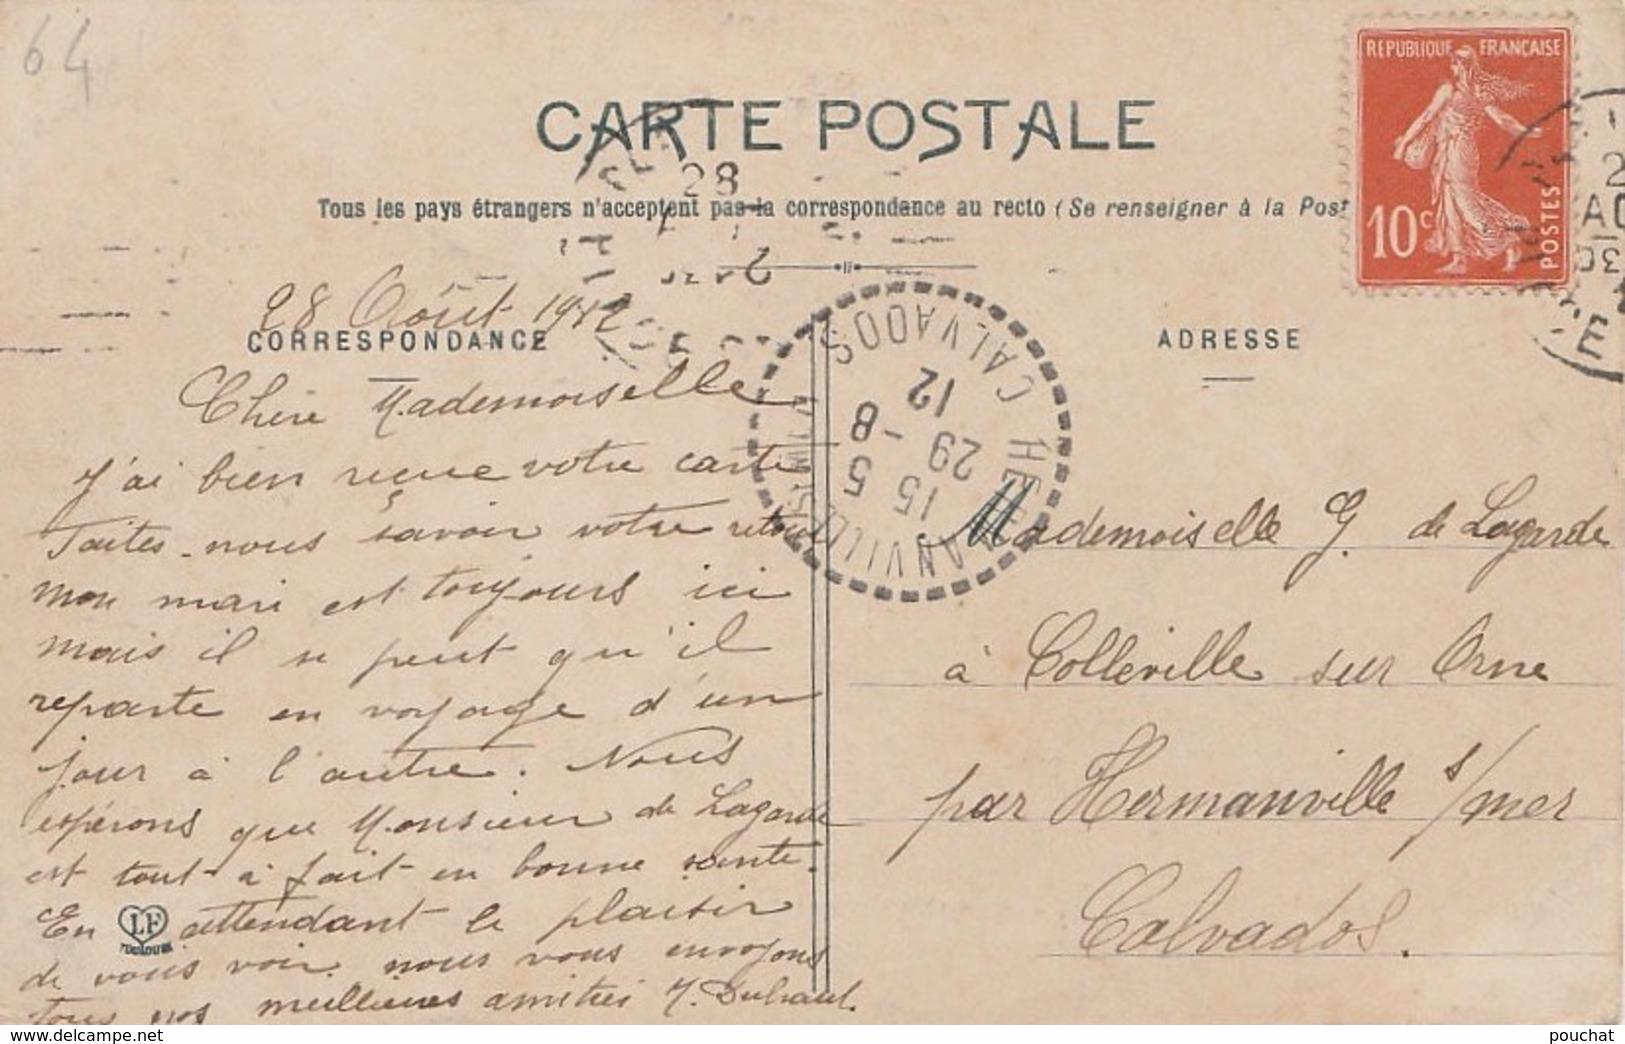 64
CARTE POSTALE
Tous les pays étrangers n'acceptent pas la correspondance au recto (Se renseigner à la Post
REPUBLIQUE FRANÇAISE
10c
POSTES
28
28 Août 1912
CORRESPONDANCE
ADRESSE
Chère Mademoiselle
J'ai bien reçue votre carte
Faites-nous savoir votre retour
mon mari est toujours ici
mais il se peut qu'il
reparte en voyage d'un
jour à l'autre. Nous
espérons que Monsieur de Lagarde
est tout à fait en bonne santé.
En attendant le plaisir
de vous voir nous vous envoyons
tous nos meilleures amitiés
LF
TOULOUSE
HERMANVILLE
CALVADOS
15
29 -8
12
Mademoiselle G. de Lagarde
à Colleville sur Orne
par Hermanville s/mer
Calvados.
delcampe.net
pouchat